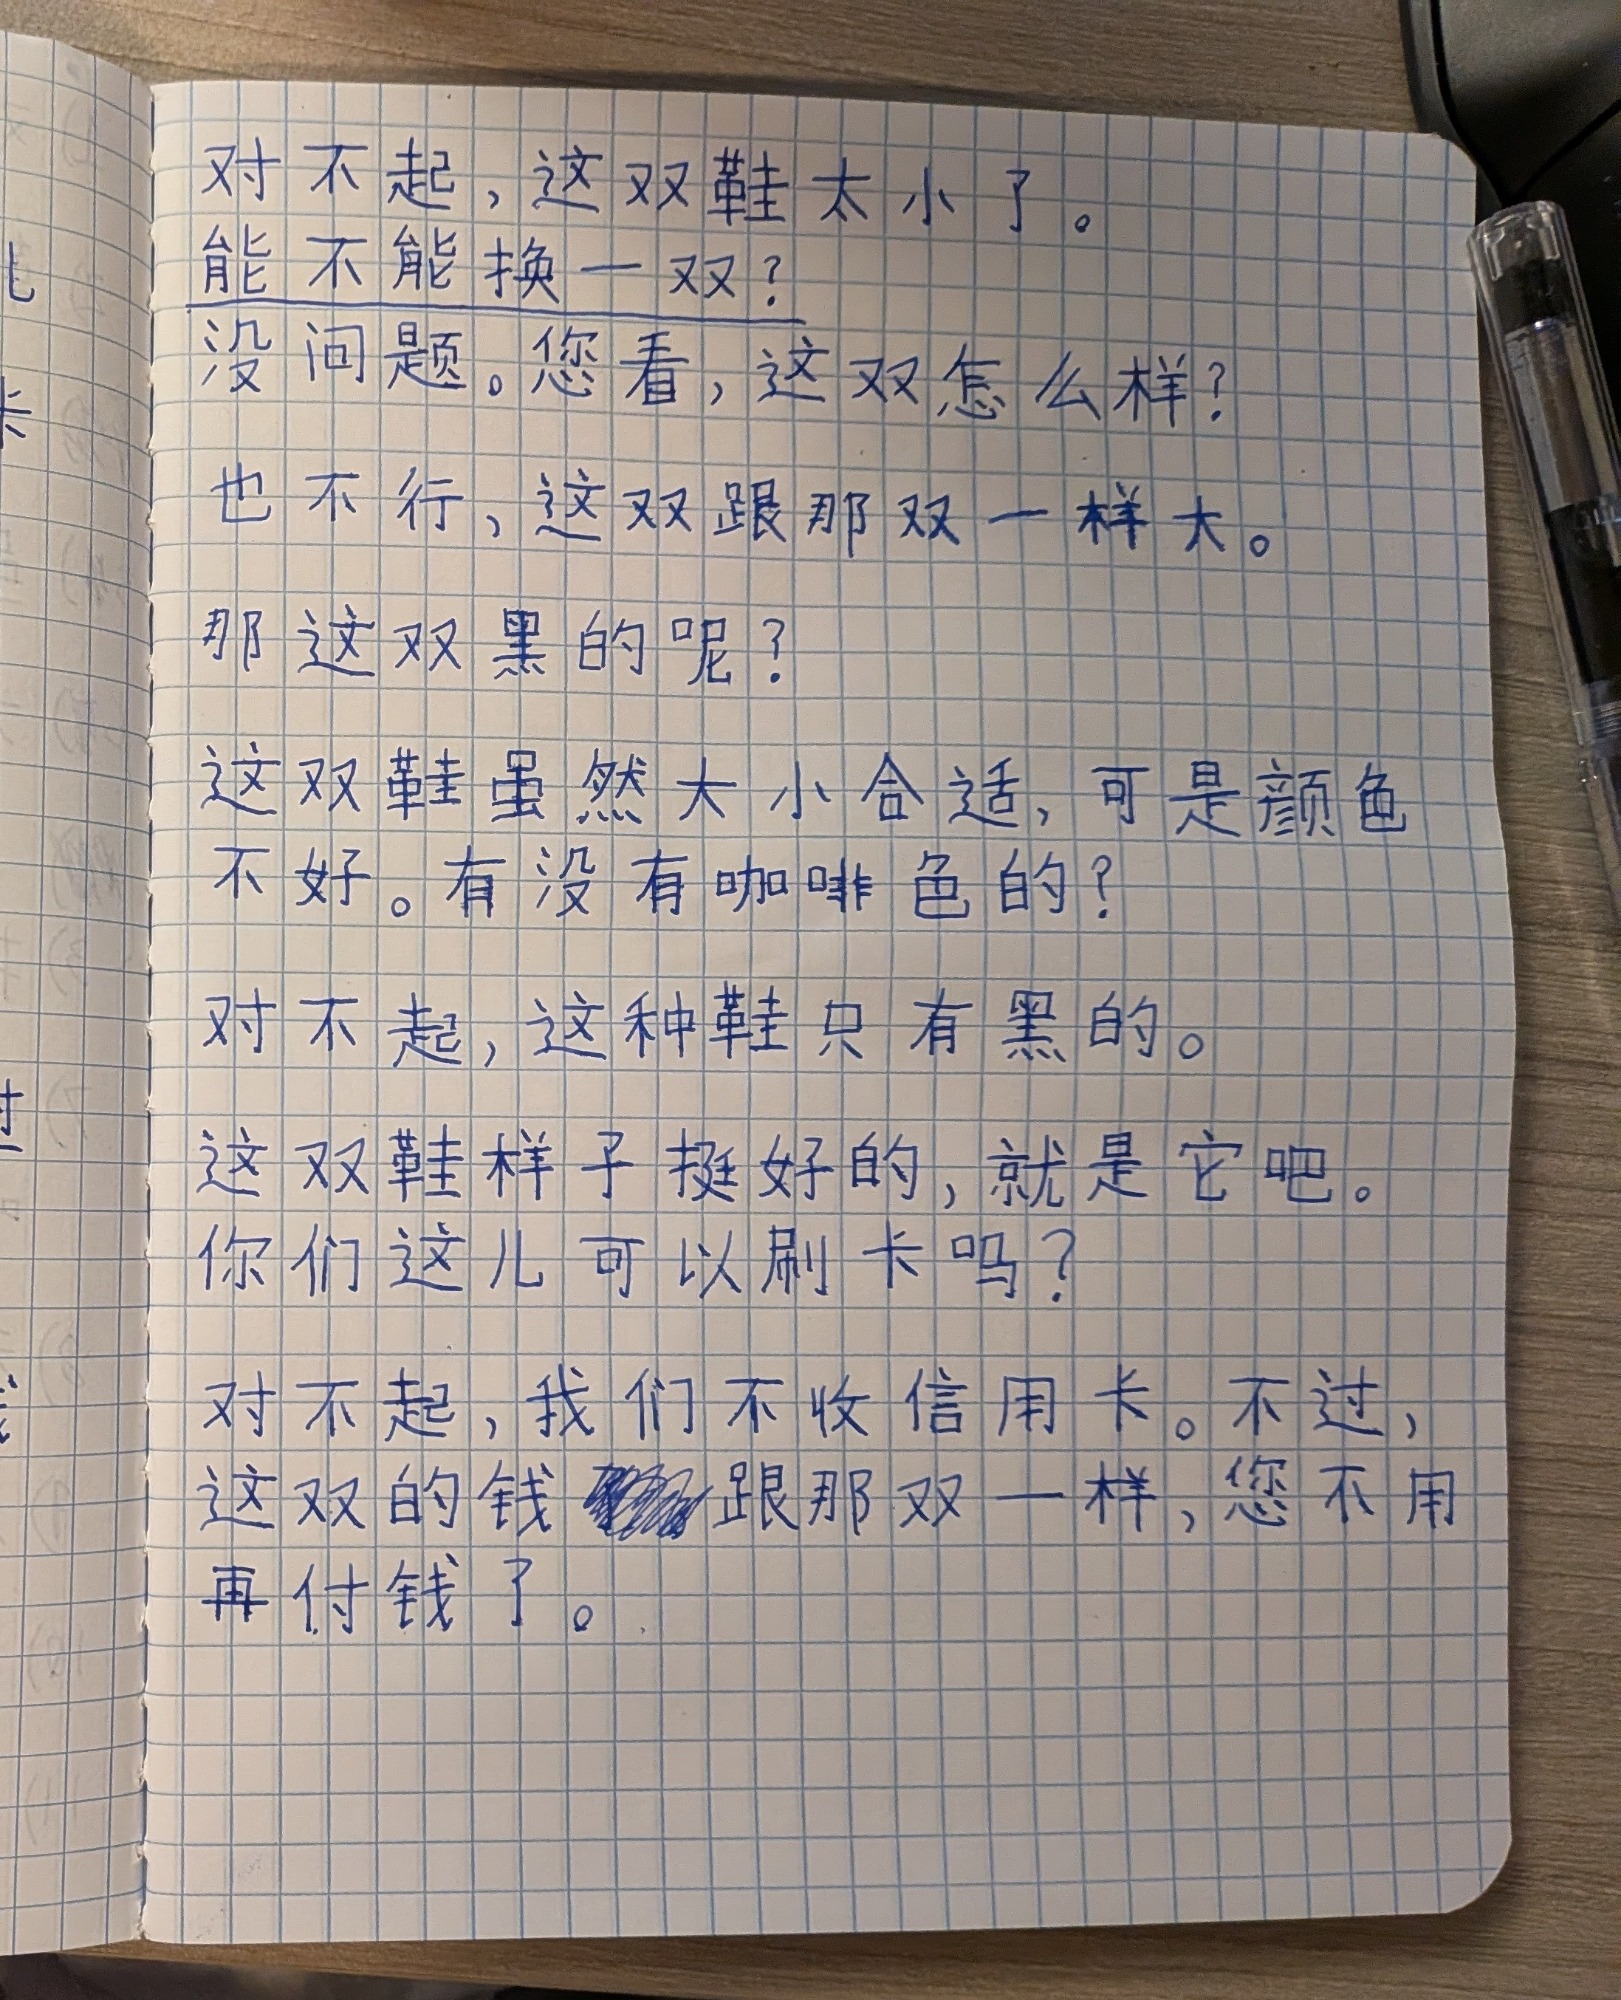 对不起,这双鞋太小了。
能不能换一双?
没问题。您看,这双怎么样?
也不行,这双跟那双一样大。
那这双黑的呢?
这双鞋虽然大小合适,可是颜色
不好。有没有咖啡色的?
对不起,这种鞋只有黑的。
这双鞋样子挺好的,就是它吧。
你们这儿可以刷卡吗?
对不起,我们不收信用卡。不过,
这双的钱跟那双一样,您不用
再付钱了。